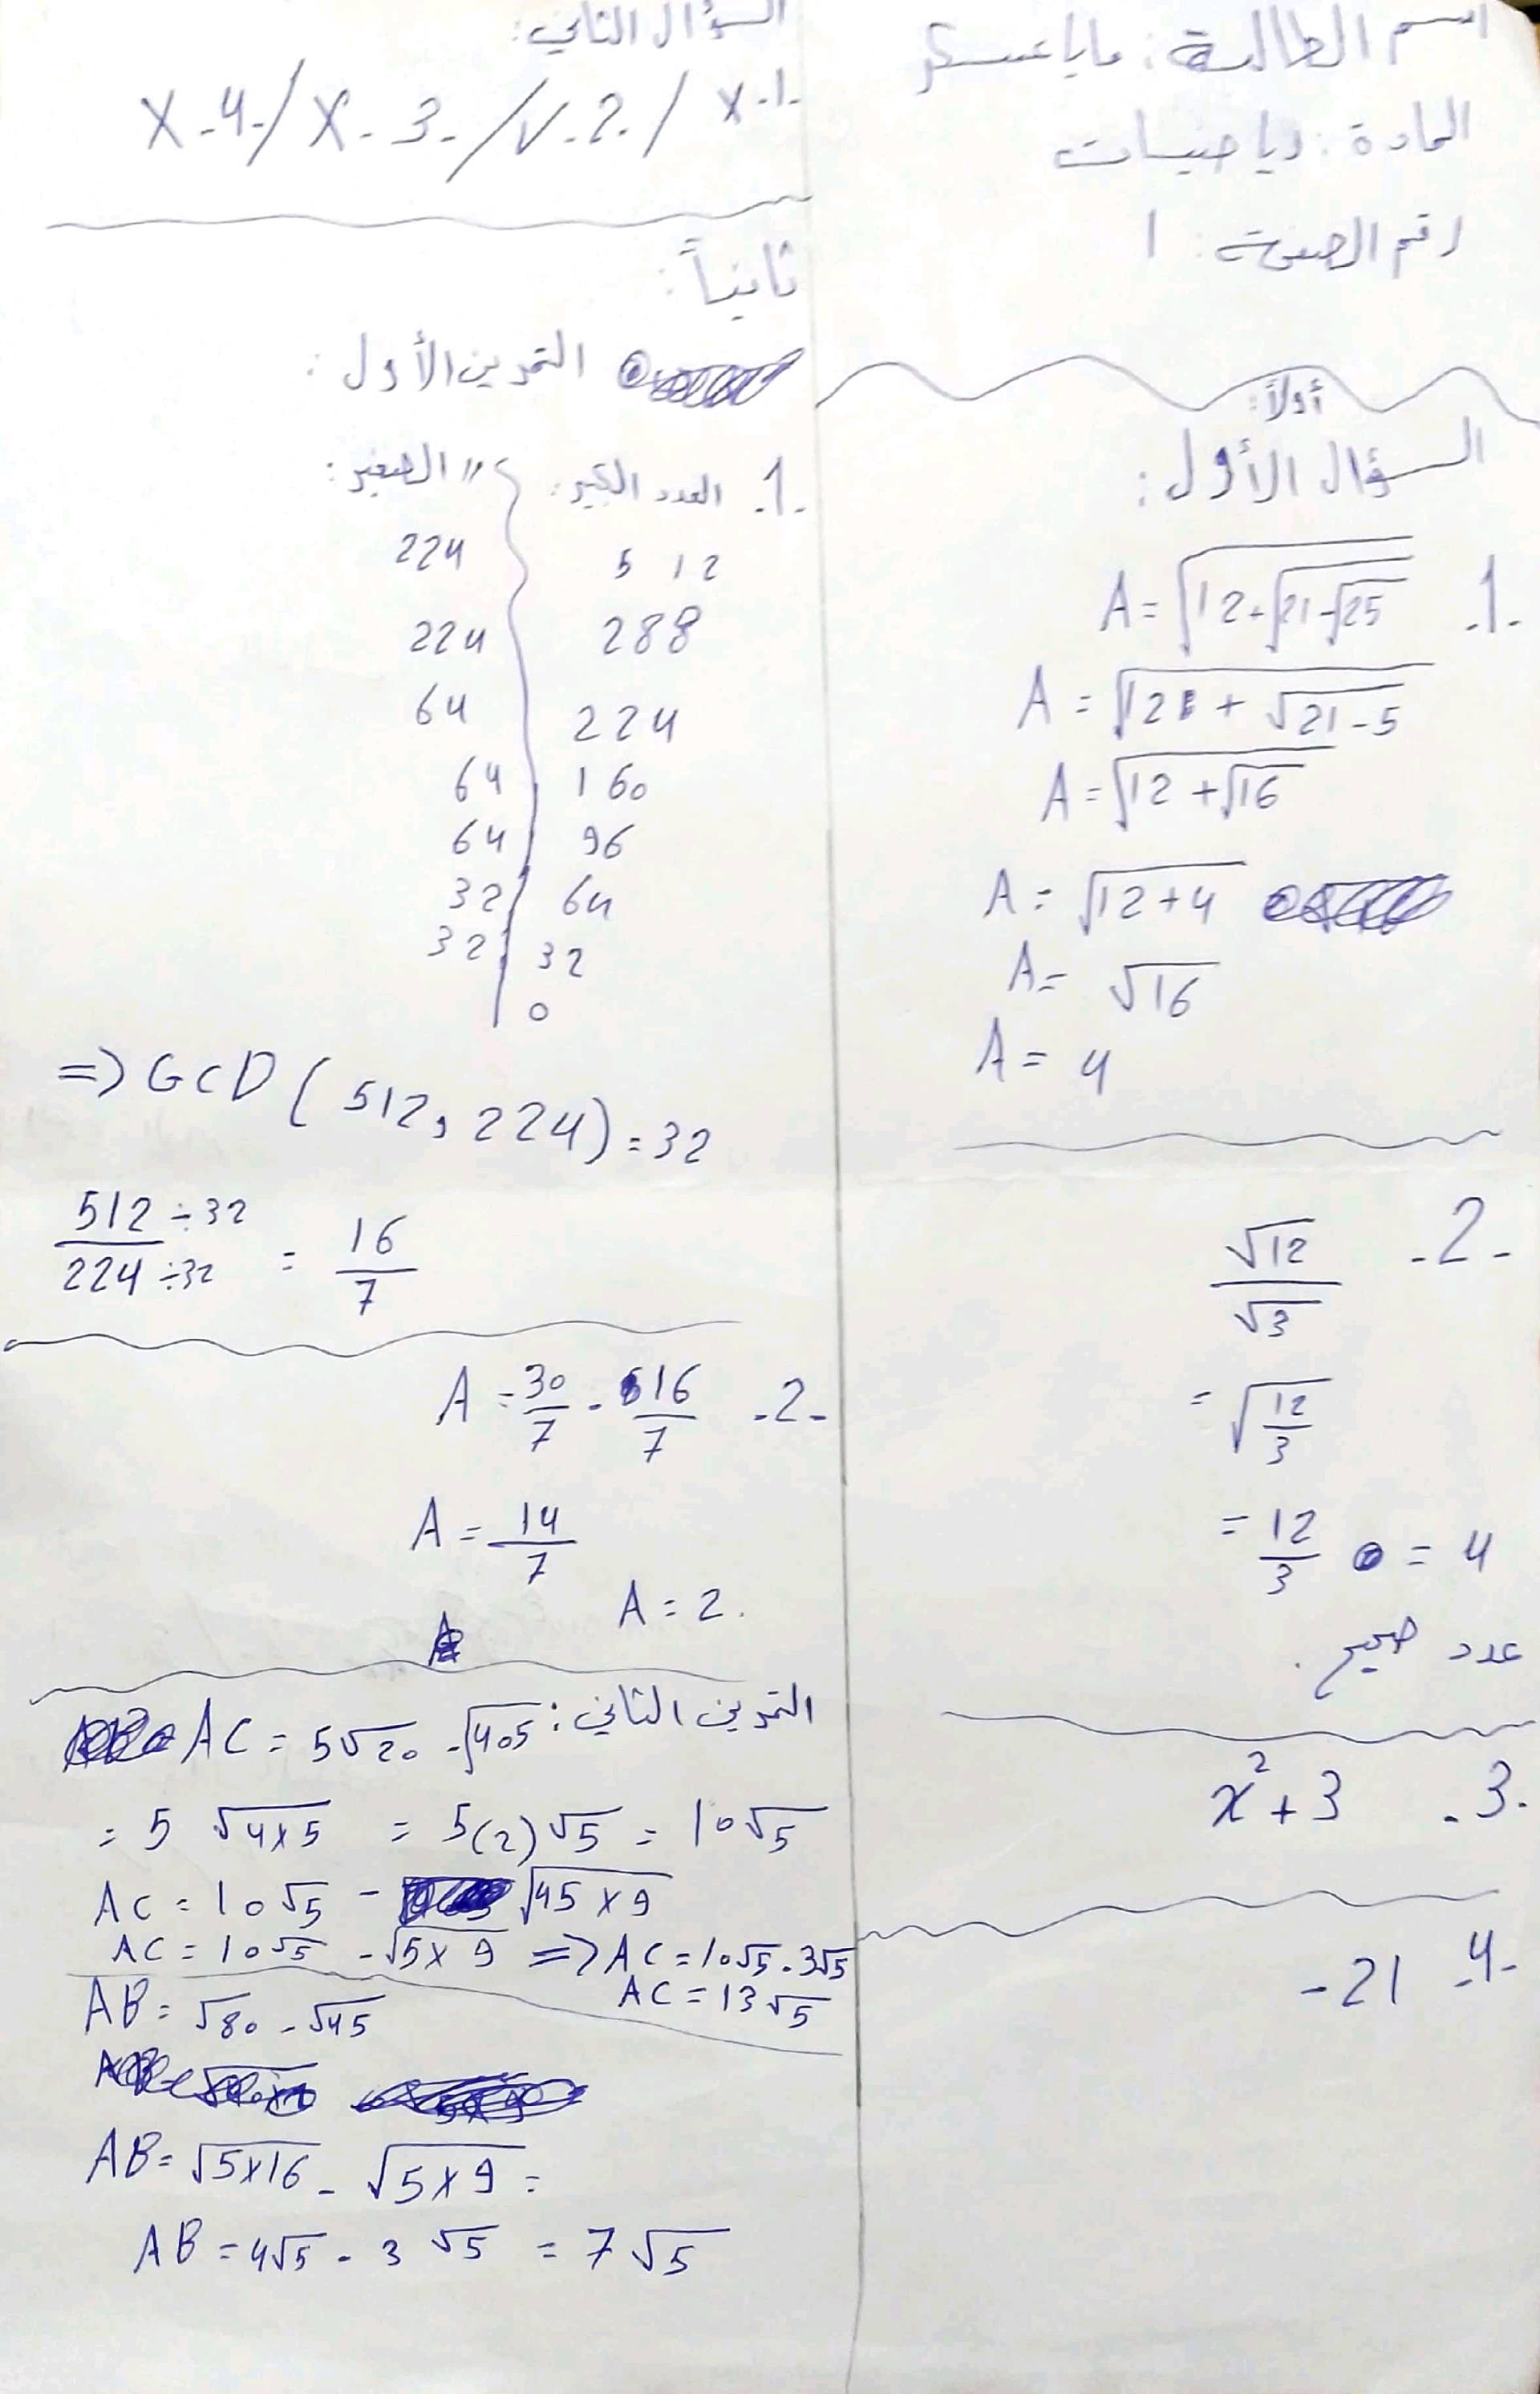 اسم الطالبة: مايا عسكر
المادة: رياضيات
رقم الصفحة: 1
أولاً:
السؤال الأول:
-1- A = √(12+√(21-√25))
A = √(12 + √(21-5))
A = √(12+√16)
A = √(12+4)
A = √16
A = 4
-2- √12/√3
= √(12/3)
= 12/3 = 4
عدد صحيح.
-3- x²+3
-4- -21
السؤال الثاني:
-1- X / -2- √ / -3- X / -4- X
ثانياً:
التمرين الأول:
-1- العدد الكبير: " الصغير:
512 224
288 224
224 64
160 64
96 64
64 32
32 32
0
=> GCD (512, 224) = 32
512÷32/224÷32 = 16/7
-2- A = 30/7 - 16/7
A = 14/7
A = 2.
التمرين الثاني: AC = 5√20 - √405
= 5 √(4×5) = 5(2)√5 = 10√5
AC = 10√5 - √(45×9)
AC = 10√5 - √(5×9) => AC = 10√5 - 3√5
AC = 13√5
AB = √80 - √45
AB = √(5×16) - √(5×9) =
AB = 4√5 - 3√5 = 7√5